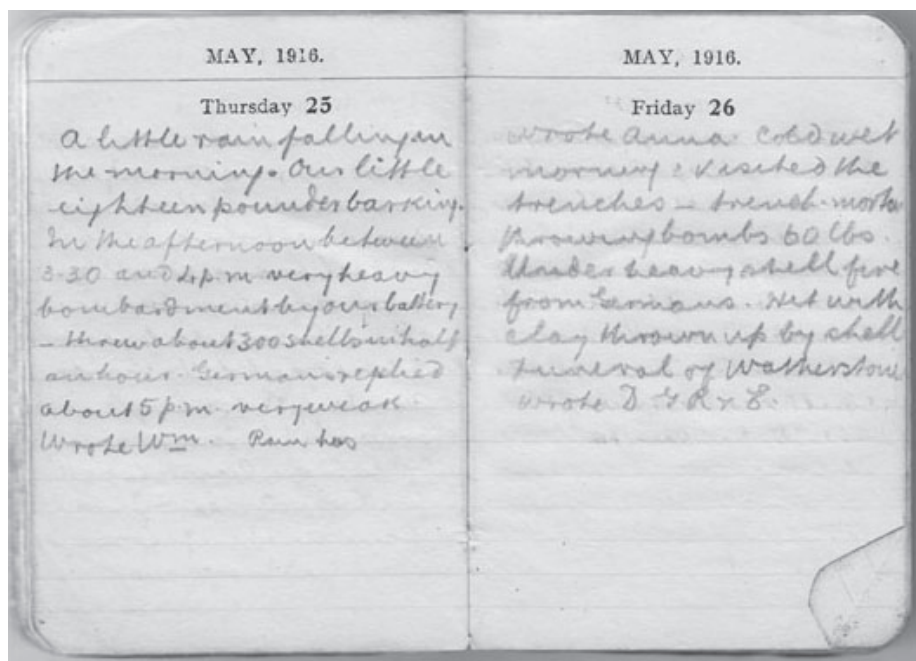 MAY, 1916.
Thursday 25
A little rain falling in
the morning. Our little
eighteen pounder barking.
In the afternoon between
3.30 and 4 p.m. very heavy
bombardment by our battery
– threw about 300 shells in half
an hour. Germans replied
about 5 p.m. very weak
Wrote Wm.
MAY, 1916.
Friday 26
Wrote Anna. Cold wet
morning: visited the
trenches – trench-mortar
throwing bombs 60 lbs.
Under heavy shell fire
from Germans. Hit with
clay thrown up by shell
Funeral of Watherstone
wrote D